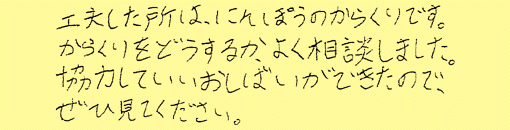 工夫した所は、にんぽうのからくりです。
からくりをどうするか、よく相談しました。
協力していいおしばいができたので、
ぜひ見てください。